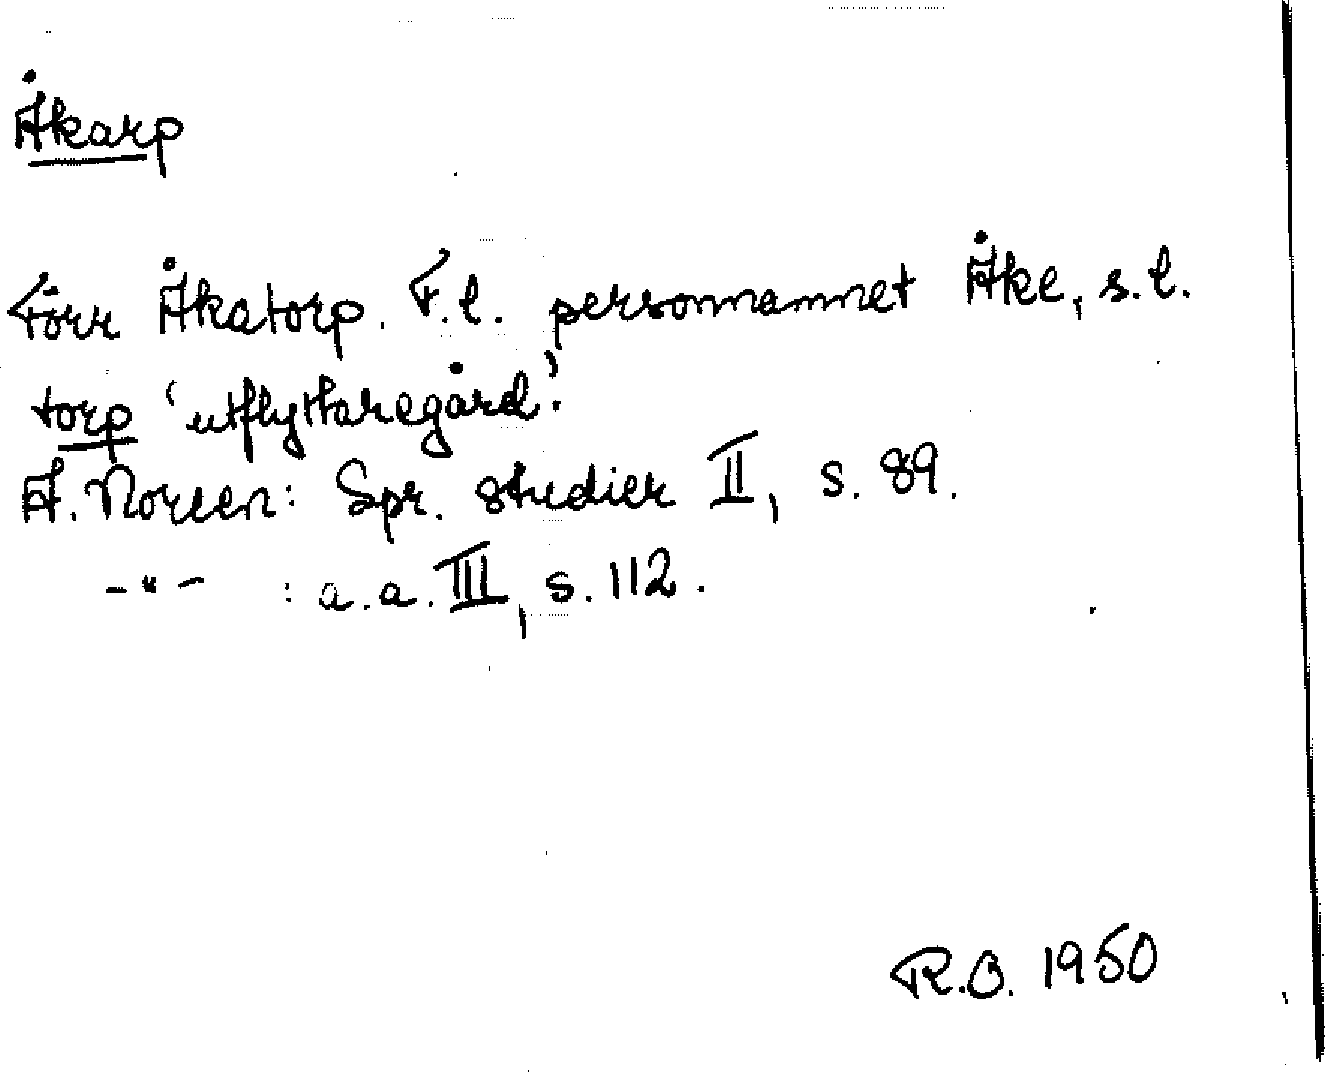 Åkarp
Förr Åkatorp. F.l. personnamnet Åke, s.l.
torp 'utflyttaregård'.
A. Noreen: Spr. studier II, s. 89.
-"- : a.a. III, s. 112.
R.O. 1950